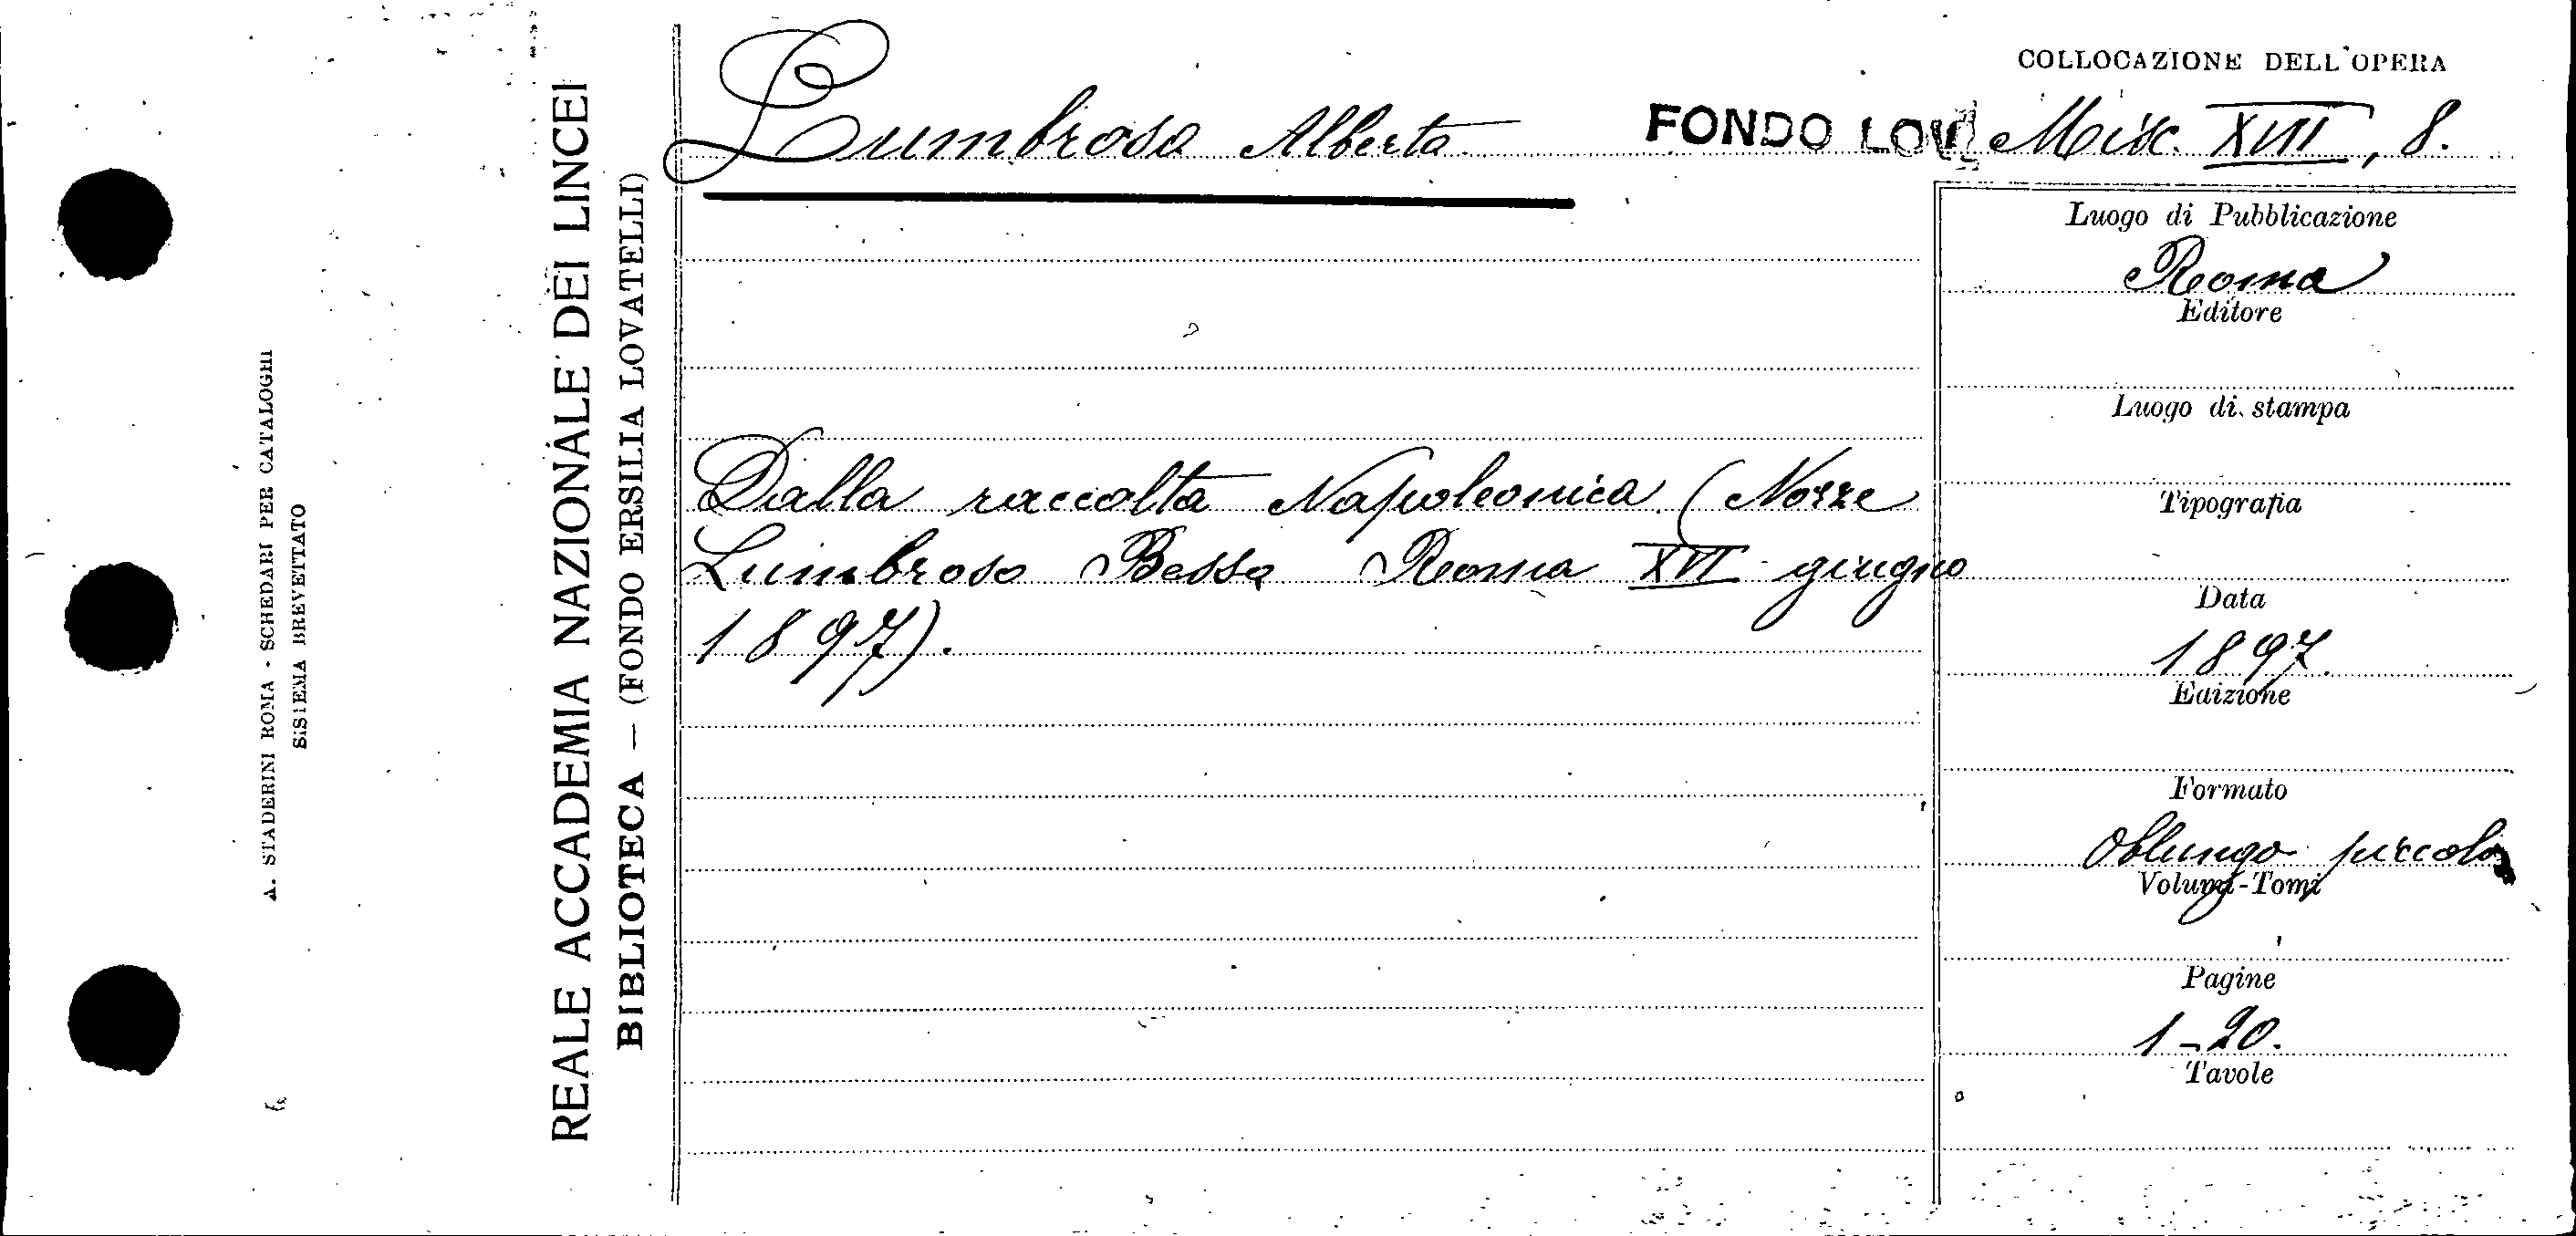 A. STADERINI ROMA - SCHEDARI PER CATALOGHI
SISTEMA BREVETTATO
REALE ACCADEMIA NAZIONALE DEI LINCEI
BIBLIOTECA — (FONDO ERSILIA LOVATELLI)
COLLOCAZIONE DELL'OPERA
Lumbroso Alberto FONDO LOV Misc. XVII, 8.
Dalla raccolta Napoleonica. (Nozze
Lumbroso Bessa Roma XVI giugno
1897).
Luogo di Pubblicazione
Roma
Editore
Luogo di stampa
Tipografia
Data
1897.
Edizione
Formato
Oblungo piccolo
Volumi-Tomi
Pagine
1-20.
Tavole